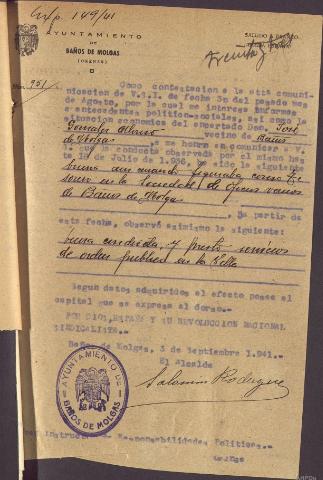 Exp 149/41
AYUNTAMIENTO
DE
BAÑOS DE MOLGAS
(ORENSE)
SALUDO A FRANCO
Núm. 951
Como contestación a la atta comuni-
cacion de V.S.I. de fecha 30 del pasado mes
de Agosto, por la cual me interesa informes
y antecedentes politico-sociales, así como la
situacion económica del expertado Don. José
González Alvaro
vecino de Baños
de Molgas
me honro en comunicar a V.
que la conducta observada por el mismo has
ta 18 de Julio de 1.936, ha sido la siguiente
buena aun cuando figuraba como te
sorero en la Sociedad de oficios varios
de Baños de Molgas
A partir de
esta fecha, observó asimismo lo siguiente:
buena conducta, y prestó servicios
de orden publico en la Villa
Segun datos adquiridos al efecto posee el
capital que se expresa al dorso.
POR DIOS, ESPAÑA Y SU REVOLUCION NACIONAL
SINDICALISTA.
Baños de Molgas, 3 de Septiembre 1.941.-
El Alcalde
Salomin Rodriguez
AYUNTAMIENTO DE
BAÑOS DE MOLGAS
Instructor Responsabilidades Politicas.-
Orense